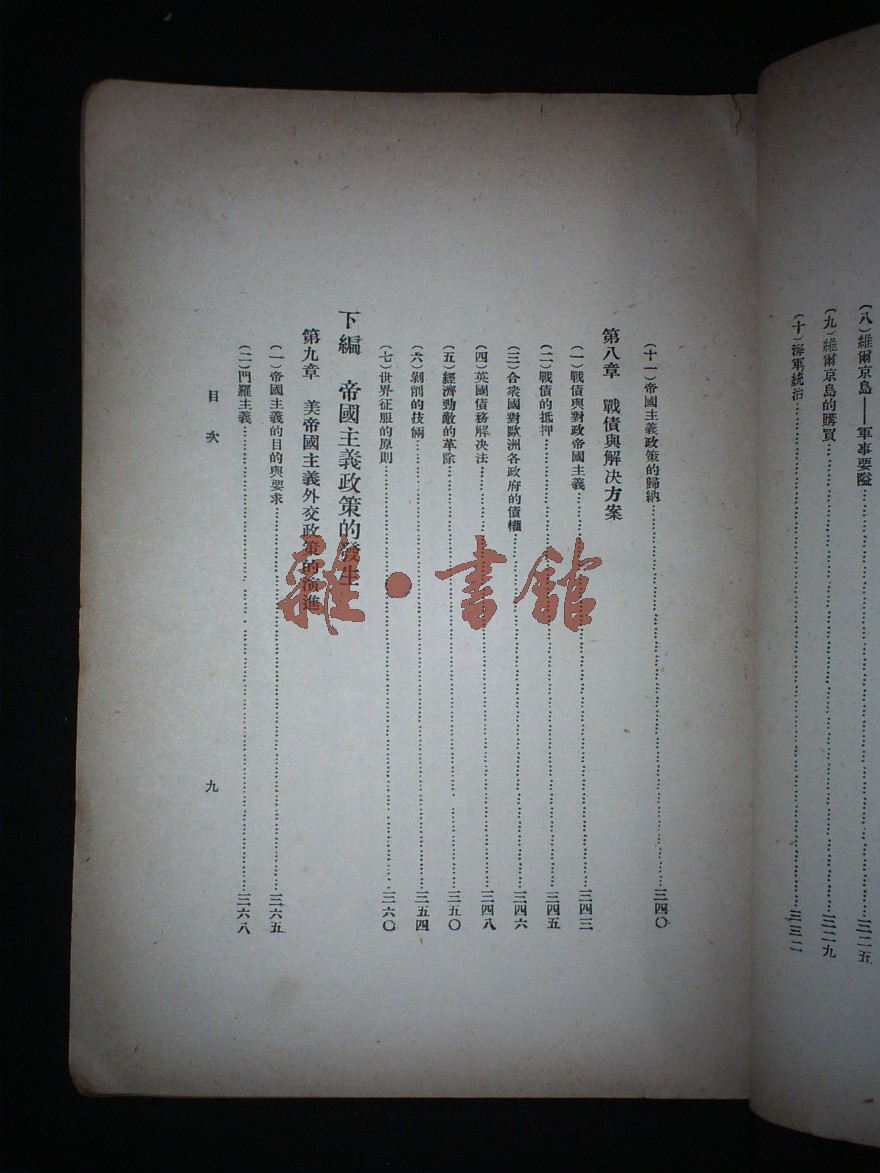 (八)維爾京島——軍事要隘……三二五
(九)維爾京島的購買……三二九
(十)海軍統治……三三二
(十一)帝國主義政策的歸納……三四〇
第八章 戰債與解決方案
(一)戰債與對政帝國主義……三四三
(二)戰債的抵押……三四五
(三)合衆國對歐洲各政府的債權……三四六
(四)英國債務解決法……三四八
(五)經濟勁敵的革除……三五〇
(六)剝削的技倆……三五四
(七)世界征服的原則……三六〇
下編 帝國主義政策的發生
第九章 美帝國主義外交政策的演進
(一)帝國主義的目的與要求……三六五
(二)門羅主義……三六八
目次
九
雜·書館